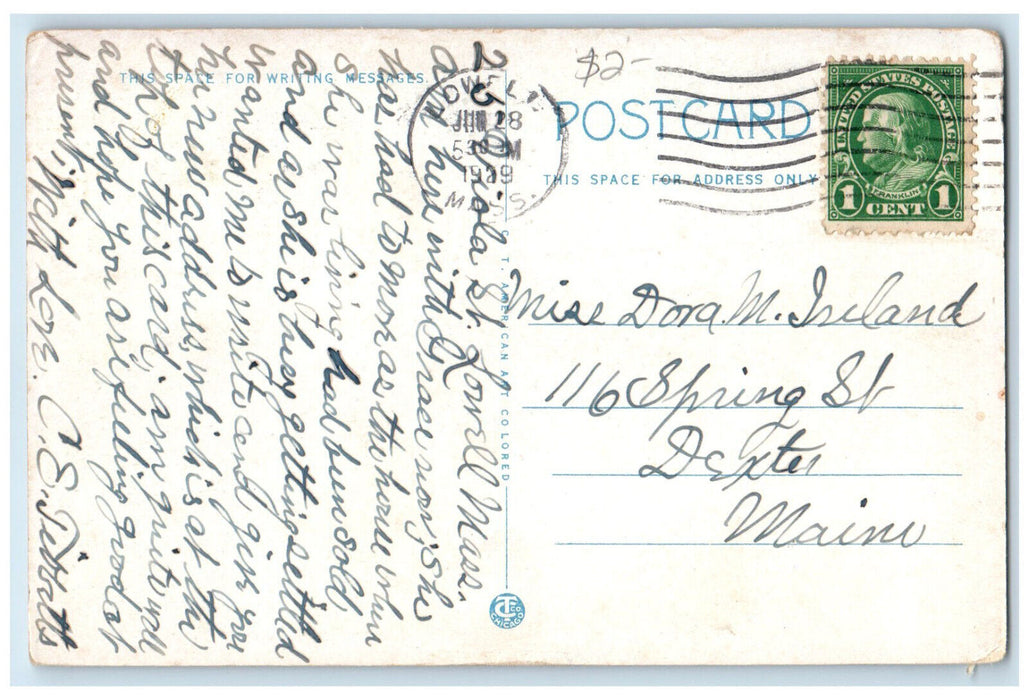 THIS SPACE FOR WRITING MESSAGES.
2 6 Viola St. Lowell Mass.
am here with Grace now, she
has had to move as the house when
she was living had been sold
and as she is busy getting settled
wanted me is write and give you
her new address, which is at the
top of this card, am quite well
and hope you are feeling good at
present, With Love. C. S. Tibbetts
LOWELL
JUN 28
530 M
1929
MASS.
$2-
POST CARD
THIS SPACE FOR ADDRESS ONLY
UNITED STATES POSTAGE
FRANKLIN
1 CENT 1
Miss Dora M. Ireland
116 Spring St
Dexter
Maine
C. T. AMERICAN ART COLORED
CT CO. CHICAGO